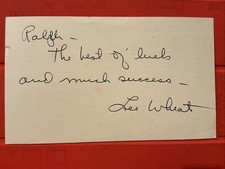 Ralph -
The best of luck
and much success -
Lee Wheat